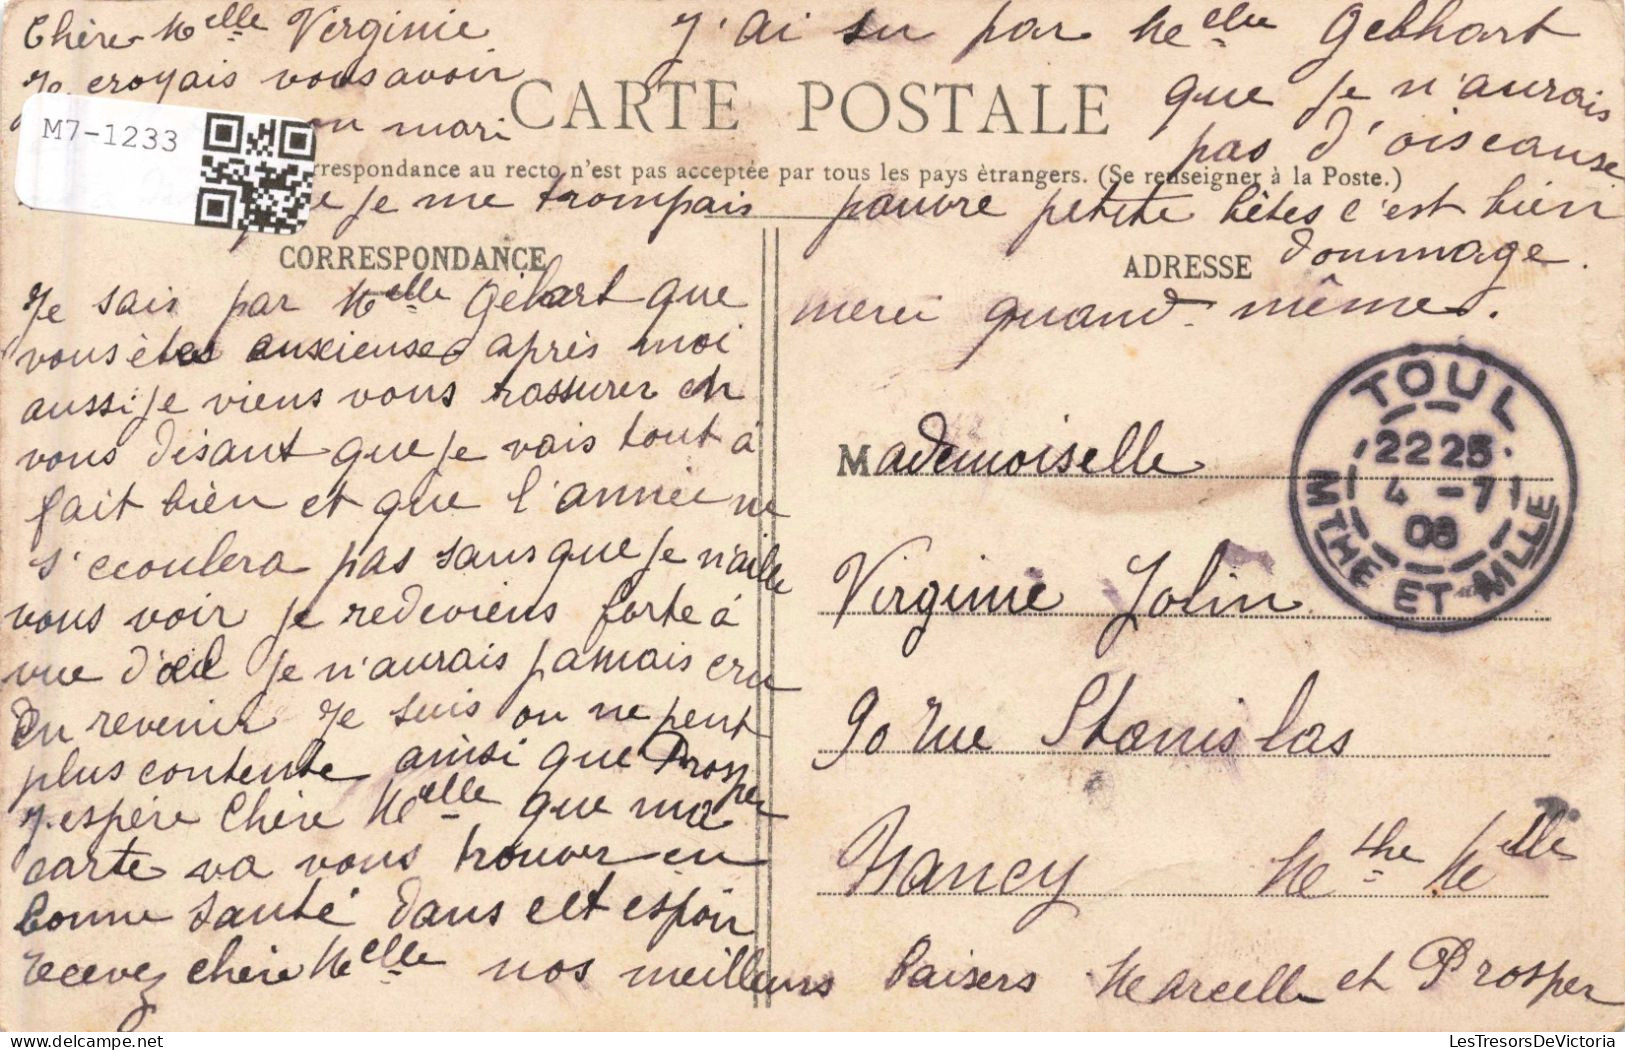 Chère Melle Virginie
Je croyais vous avoir
mon mari
je me trompais
J'ai su par Melle Gebhart
que je n'aurais
pas d'oiseause
pauvre petite bêtes c'est bien
dommage.
merci quand même.
M7-1233
CARTE POSTALE
rrespondance au recto n'est pas acceptée par tous les pays étrangers. (Se renseigner à la Poste.)
CORRESPONDANCE
Je sais par Melle Gébart que
vous êtes anxieuse après moi
aussi je viens vous rassurer en
vous disant que je vais tout à
fait bien et que l'année ne
s'ecoulera pas sans que je n'aille
vous voir je redeviens forte à
vue d'œil je n'aurais jamais cru
en revenir je suis on ne peut
plus contente ainsi que Prosper
J'espère Chère Melle que ma
carte va vous trouver en
bonne santé dans cet espoir
recevez chère Melle nos meilleurs baisers Marcelle et Prosper
ADRESSE
Mademoiselle
Virginie Jolin
90 rue Stanislas
Nancy Mthe Melle
TOUL
22 25
4 -7
08
MTHE ET MLLE
LesTresorsDeVictoria